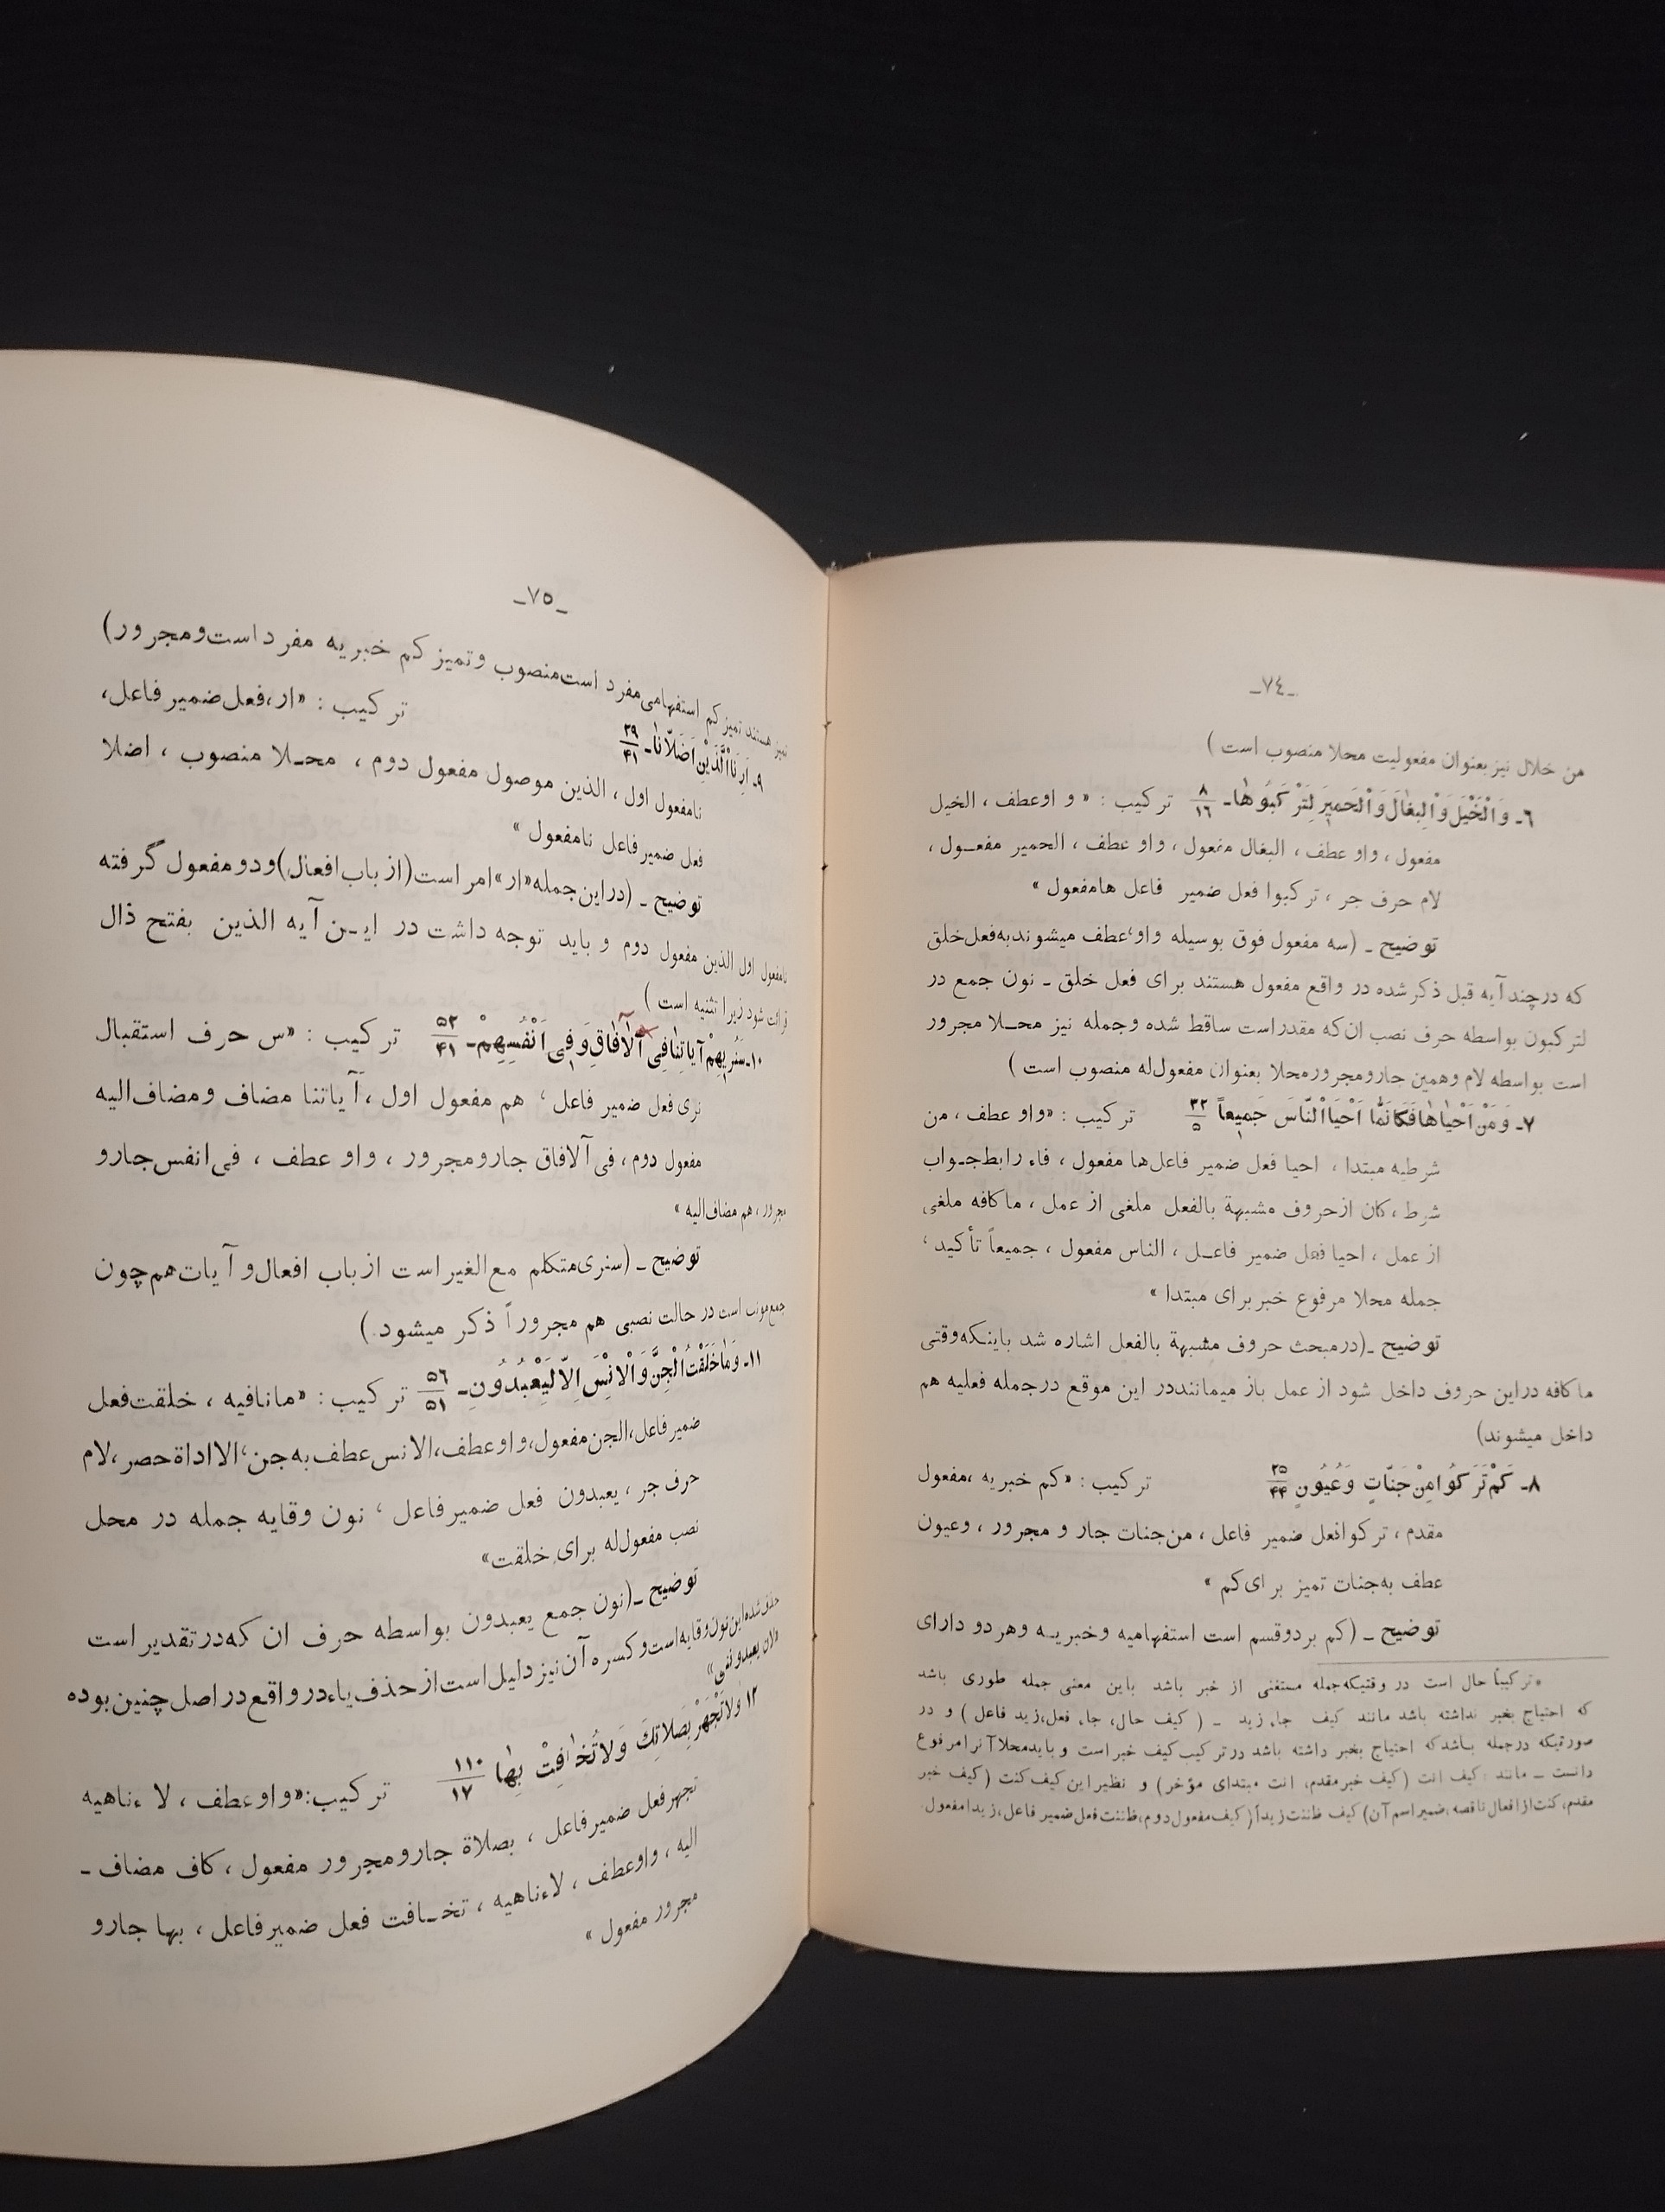 ـ٧٤ـ
من خلال نیز بعنوان مفعولیت محلا منصوب است )
٦ـ وَالْخَیْلَ وَالْبِغالَ وَالْحَمیرَ لِتَرْکَبُوها ـ ٨/١٦ ترکیب : « و اوعطف ، الخیل
مفعول ، واو عطف ، البغال مفعول ، واو عطف ، الحمیر مفعـول ،
لام حرف جر ، ترکبوا فعل ضمیر فاعل هامفعول »
توضیح ـ (سه مفعول فوق بوسیله واو، عطف میشوند به فعل خلق
که در چند آیه قبل ذکر شده در واقع مفعول هستند برای فعل خلق ـ نون جمع در
لترکبون بواسطه حرف نصب ان که مقدر است ساقط شده و جمله نیز محـلا مجرور
است بواسطه لام وهمین جارومجرور محلا بعنوان مفعول‌له منصوب است )
٧ـ وَمَنْ اَحْیاها فَکَاَنَّما اَحْیَا النّاسَ جَمیعاً ٣٢/٥ ترکیب : «واو عطف ، من
شرطیه مبتدا ، احیا فعل ضمیر فاعل ها مفعول ، فاء رابط جـواب
شرط ، کان ازحروف مشبهة بالفعل ملغی از عمل ، ما کافه ملغی
از عمل ، احیا فعل ضمیر فاعـل ، الناس مفعول ، جمیعاً تأکید ،
جمله محلا مرفوع خبر برای مبتدا »
توضیح ـ (درمبحث حروف مشبهة بالفعل اشاره شد باینکه وقتی
ما کافه دراین حروف داخل شود از عمل باز میمانند در این موقع درجمله فعلیه هم
داخل میشوند)
٨ـ کَمْ تَرَکُوا مِنْ جَنّاتٍ وَعُیُونٍ ٢٥/٤٤ ترکیب : «کم خبریه ،مفعول
مقدم ، ترکوا فعل ضمیر فاعل ، من جنات جار و مجرور ، وعیون
عطف به جنات تمیز برای کم »
توضیح ـ (کم بر دوقسم است استفهامیه وخبریـه وهردو دارای
*ترکیباً حال است در وقتیکه جمله مستغنی از خبر باشد باین معنی جمله طوری باشد
که احتیاج بخبر نداشته باشد مانند کیف جاء زید ـ ( کیف حال، جاء فعل، زید فاعل ) و در
صورتیکه درجمله بـاشد که احتیاج بخبر داشته باشد در ترکیب کیف خبر است و باید محلا آنرا مرفوع
دانست ـ مانند : کیف انت (کیف خبر مقدم، انت مبتدای مؤخر) و نظیر این کیف کنت (کیف خبر
مقدم، کنت از افعال ناقصه، ضمیر اسم آن) کیف ظننت زیداً (کیف مفعول دوم، ظننت فعل ضمیر فاعل، زیدا مفعول
ـ٧٥ـ
تمیز هستند تمیز کم استفهامی مفرد است منصوب وتمیز کم خبریه مفرد است ومجرور)
٩ـ اَرِنَا الَّذَیْنِ اَضَلّانا ـ ٢٩/٤١ ترکیب : «ار، فعل ضمیر فاعل،
نامفعول اول ، الذین موصول مفعول دوم ، محـلا منصوب ، اضلا
فعل ضمیر فاعل نامفعول »
توضیح ـ (دراین جمله «ار» امر است (از باب افعال) ودو مفعول گرفته
نامفعول اول الذین مفعول دوم و باید توجه داشت در ایـن آیه الذین بفتح ذال
قرائت شود زیرا تثنیه است )
١٠ـ سَنُریهِمْ آیاتِنا فِی الْآفاقِ وَفی اَنْفُسِهِمْ ـ ٥٣/٤١ ترکیب : «س حرف استقبال
نری فعل ضمیر فاعل ، هم مفعول اول ، آیاتنا مضاف ومضاف الیه
مفعول دوم ، فی الافاق جارومجرور ، واو عطف ، فی انفس جارو
مجرور ، هم مضاف الیه »
توضیح ـ (سنری متکلم مع الغیر است از باب افعال و آیات هم چون
جمع مونث است در حالت نصبی هم مجروراً ذکر میشود )
١١ـ وَما خَلَقْتُ الْجِنَّ وَالْاِنْسَ اِلّا لِیَعْبُدُونِ ـ ٥٦/٥١ ترکیب : «مانافیه ، خلقت فعل
ضمیر فاعل، الجن مفعول، واوعطف، الانس عطف به جن، الا اداة حصر، لام
حرف جر ، یعبدون فعل ضمیر فاعل ، نون وقایه جمله در محل
نصب مفعول له برای خلقت»
توضیح ـ (نون جمع یعبدون بواسطه حرف ان که در تقدیر است
حذف شده این نون وقایه است وکسره آن نیز دلیل است از حذف یاء در واقع در اصل چنین بوده
«لان یعبدوننی»)
١٢ وَلا تَجْهَرْ بِصَلاتِکَ وَلا تُخافِتْ بِها ١١٠/١٧ ترکیب: «واوعطف ، لا ءناهیه
تجهر فعل ضمیر فاعل ، بصلاة جارومجرور مفعول ، کاف مضاف ـ
الیه ، واوعطف ، لاءناهیه ، تخـافت فعل ضمیر فاعل ، بها جارو
مجرور مفعول »